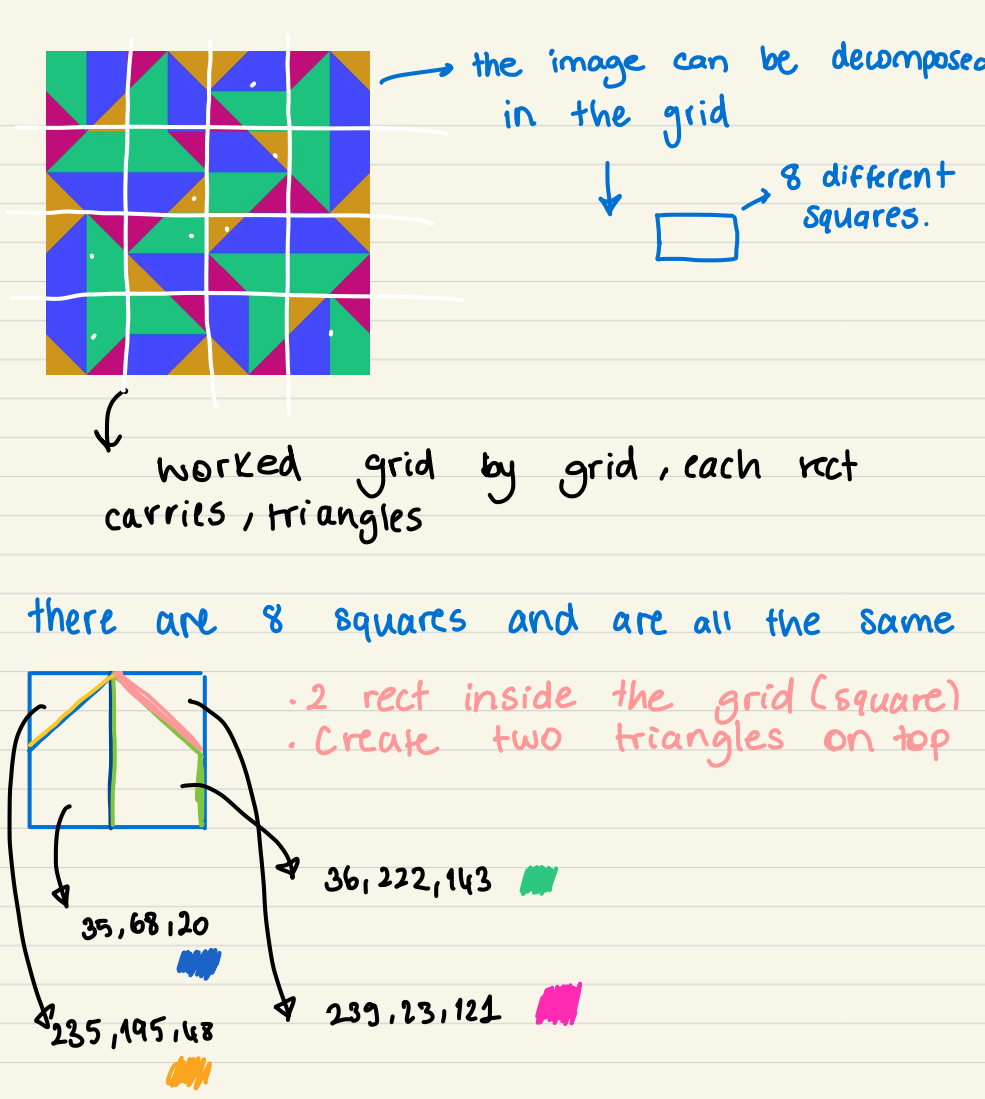 the image can be decomposed
in the grid
8 different
squares.
worked grid by grid, each rect
carries, triangles
there are 8 squares and are all the same
· 2 rect inside the grid (square)
· Create two triangles on top
36,222,143
35,68,20
239,23,121
235,195,48